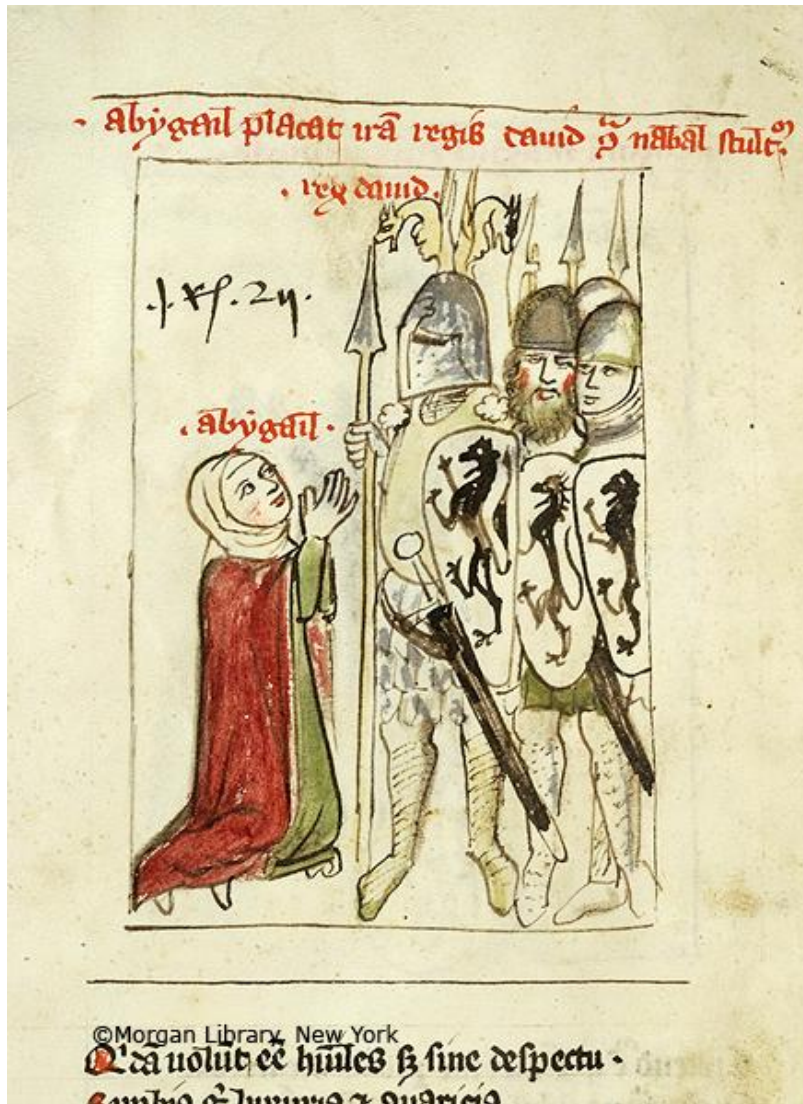 · abygail placat irā regis dauid q̄ nabal stult9
· rex dauid ·
· abygail ·
©Morgan Library, New York
Q'dā uolūt eē hūiles sȝ sine despectu ·